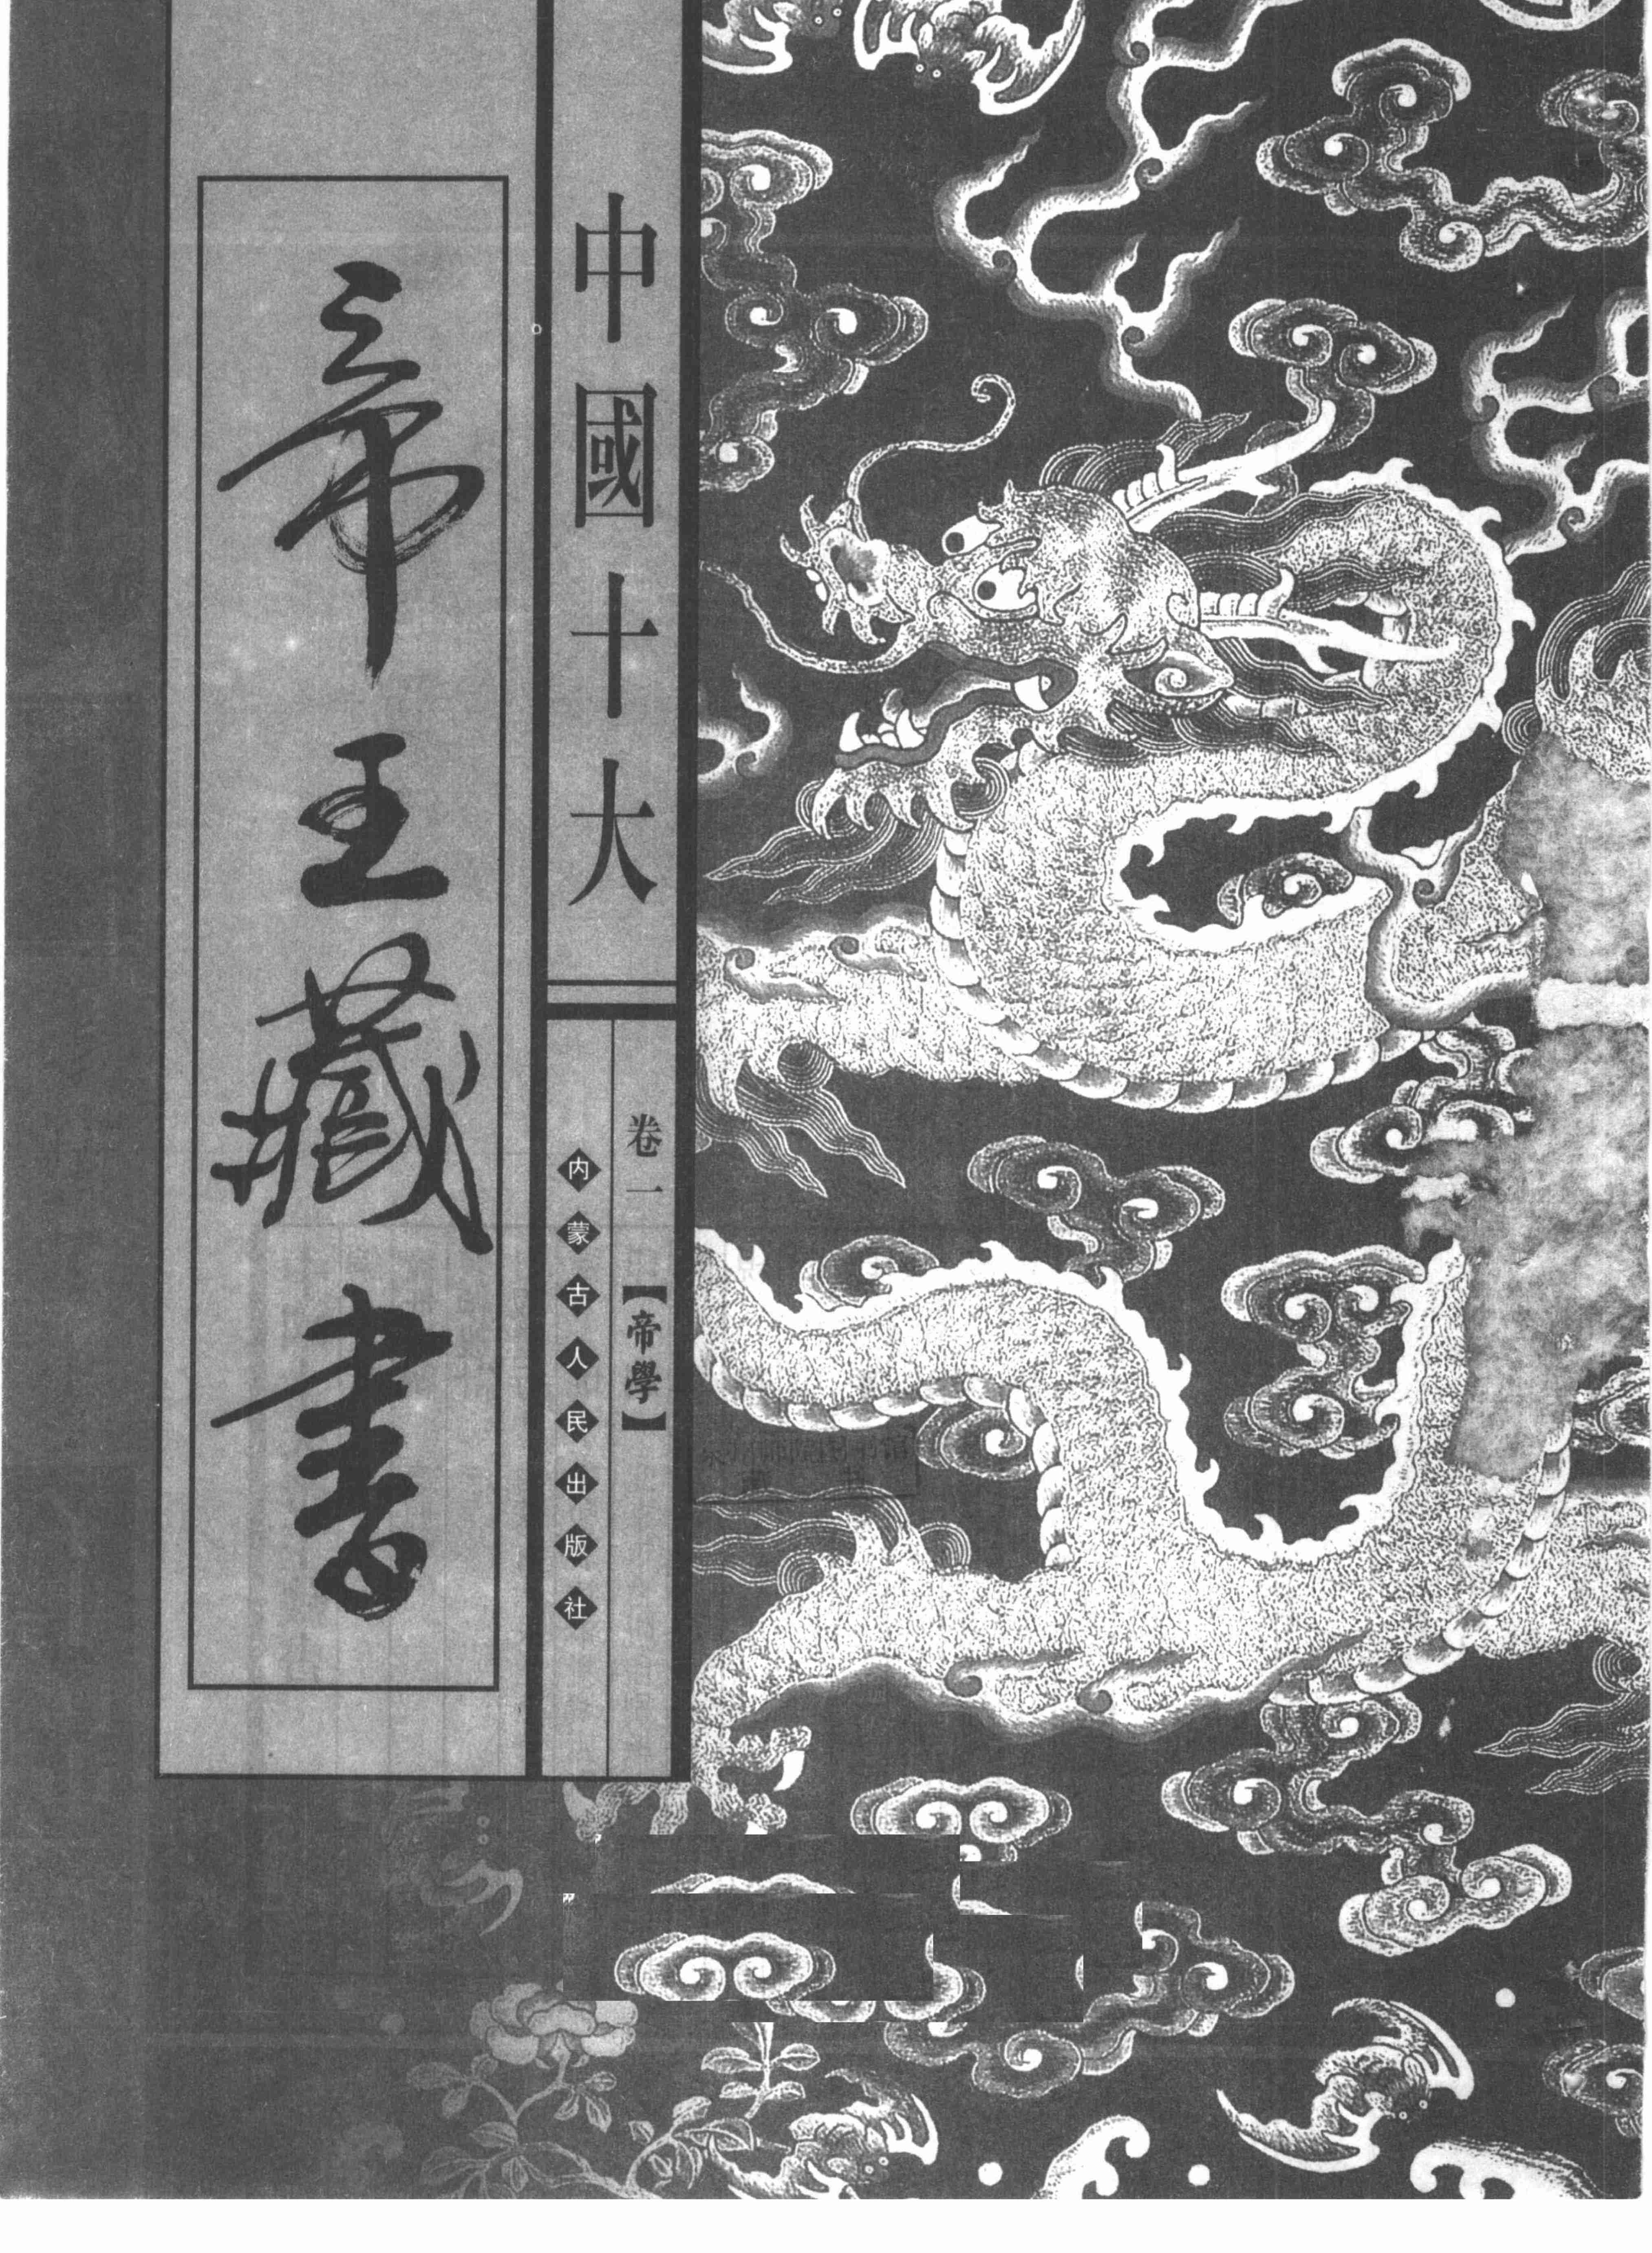 中國十大
帝王藏書
卷一
【帝學】
内蒙古人民出版社